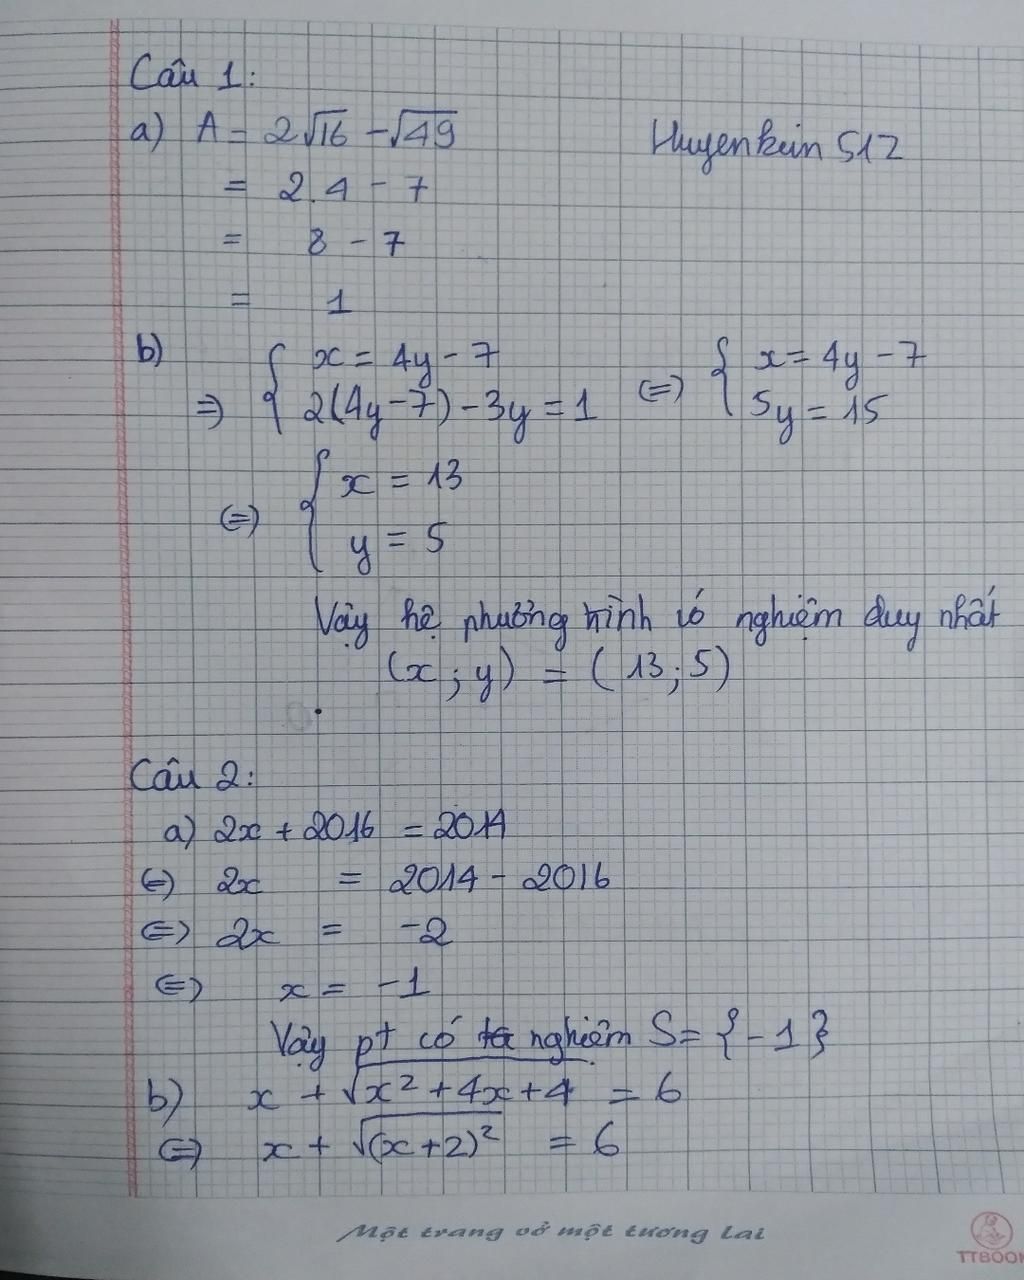 Câu 1:
a) A = 2√16 - √49
Huyenkun 512
= 2.4 - 7
= 8 - 7
= 1
b)
=> { x = 4y - 7
2(4y-7) - 3y = 1
<=> { x = 4y - 7
5y = 15
<=> { x = 13
y = 5
Vậy hệ phương trình có nghiệm duy nhất
(x ; y) = (13 ; 5)
Câu 2:
a) 2x + 2016 = 2014
<=> 2x = 2014 - 2016
<=> 2x = -2
<=> x = -1
Vậy pt có nghiệm S = {-1}
b) x + √(x² + 4x + 4) = 6
<=> x + √((x+2)²) = 6
Một trang vở một tương lai
TTBOOK